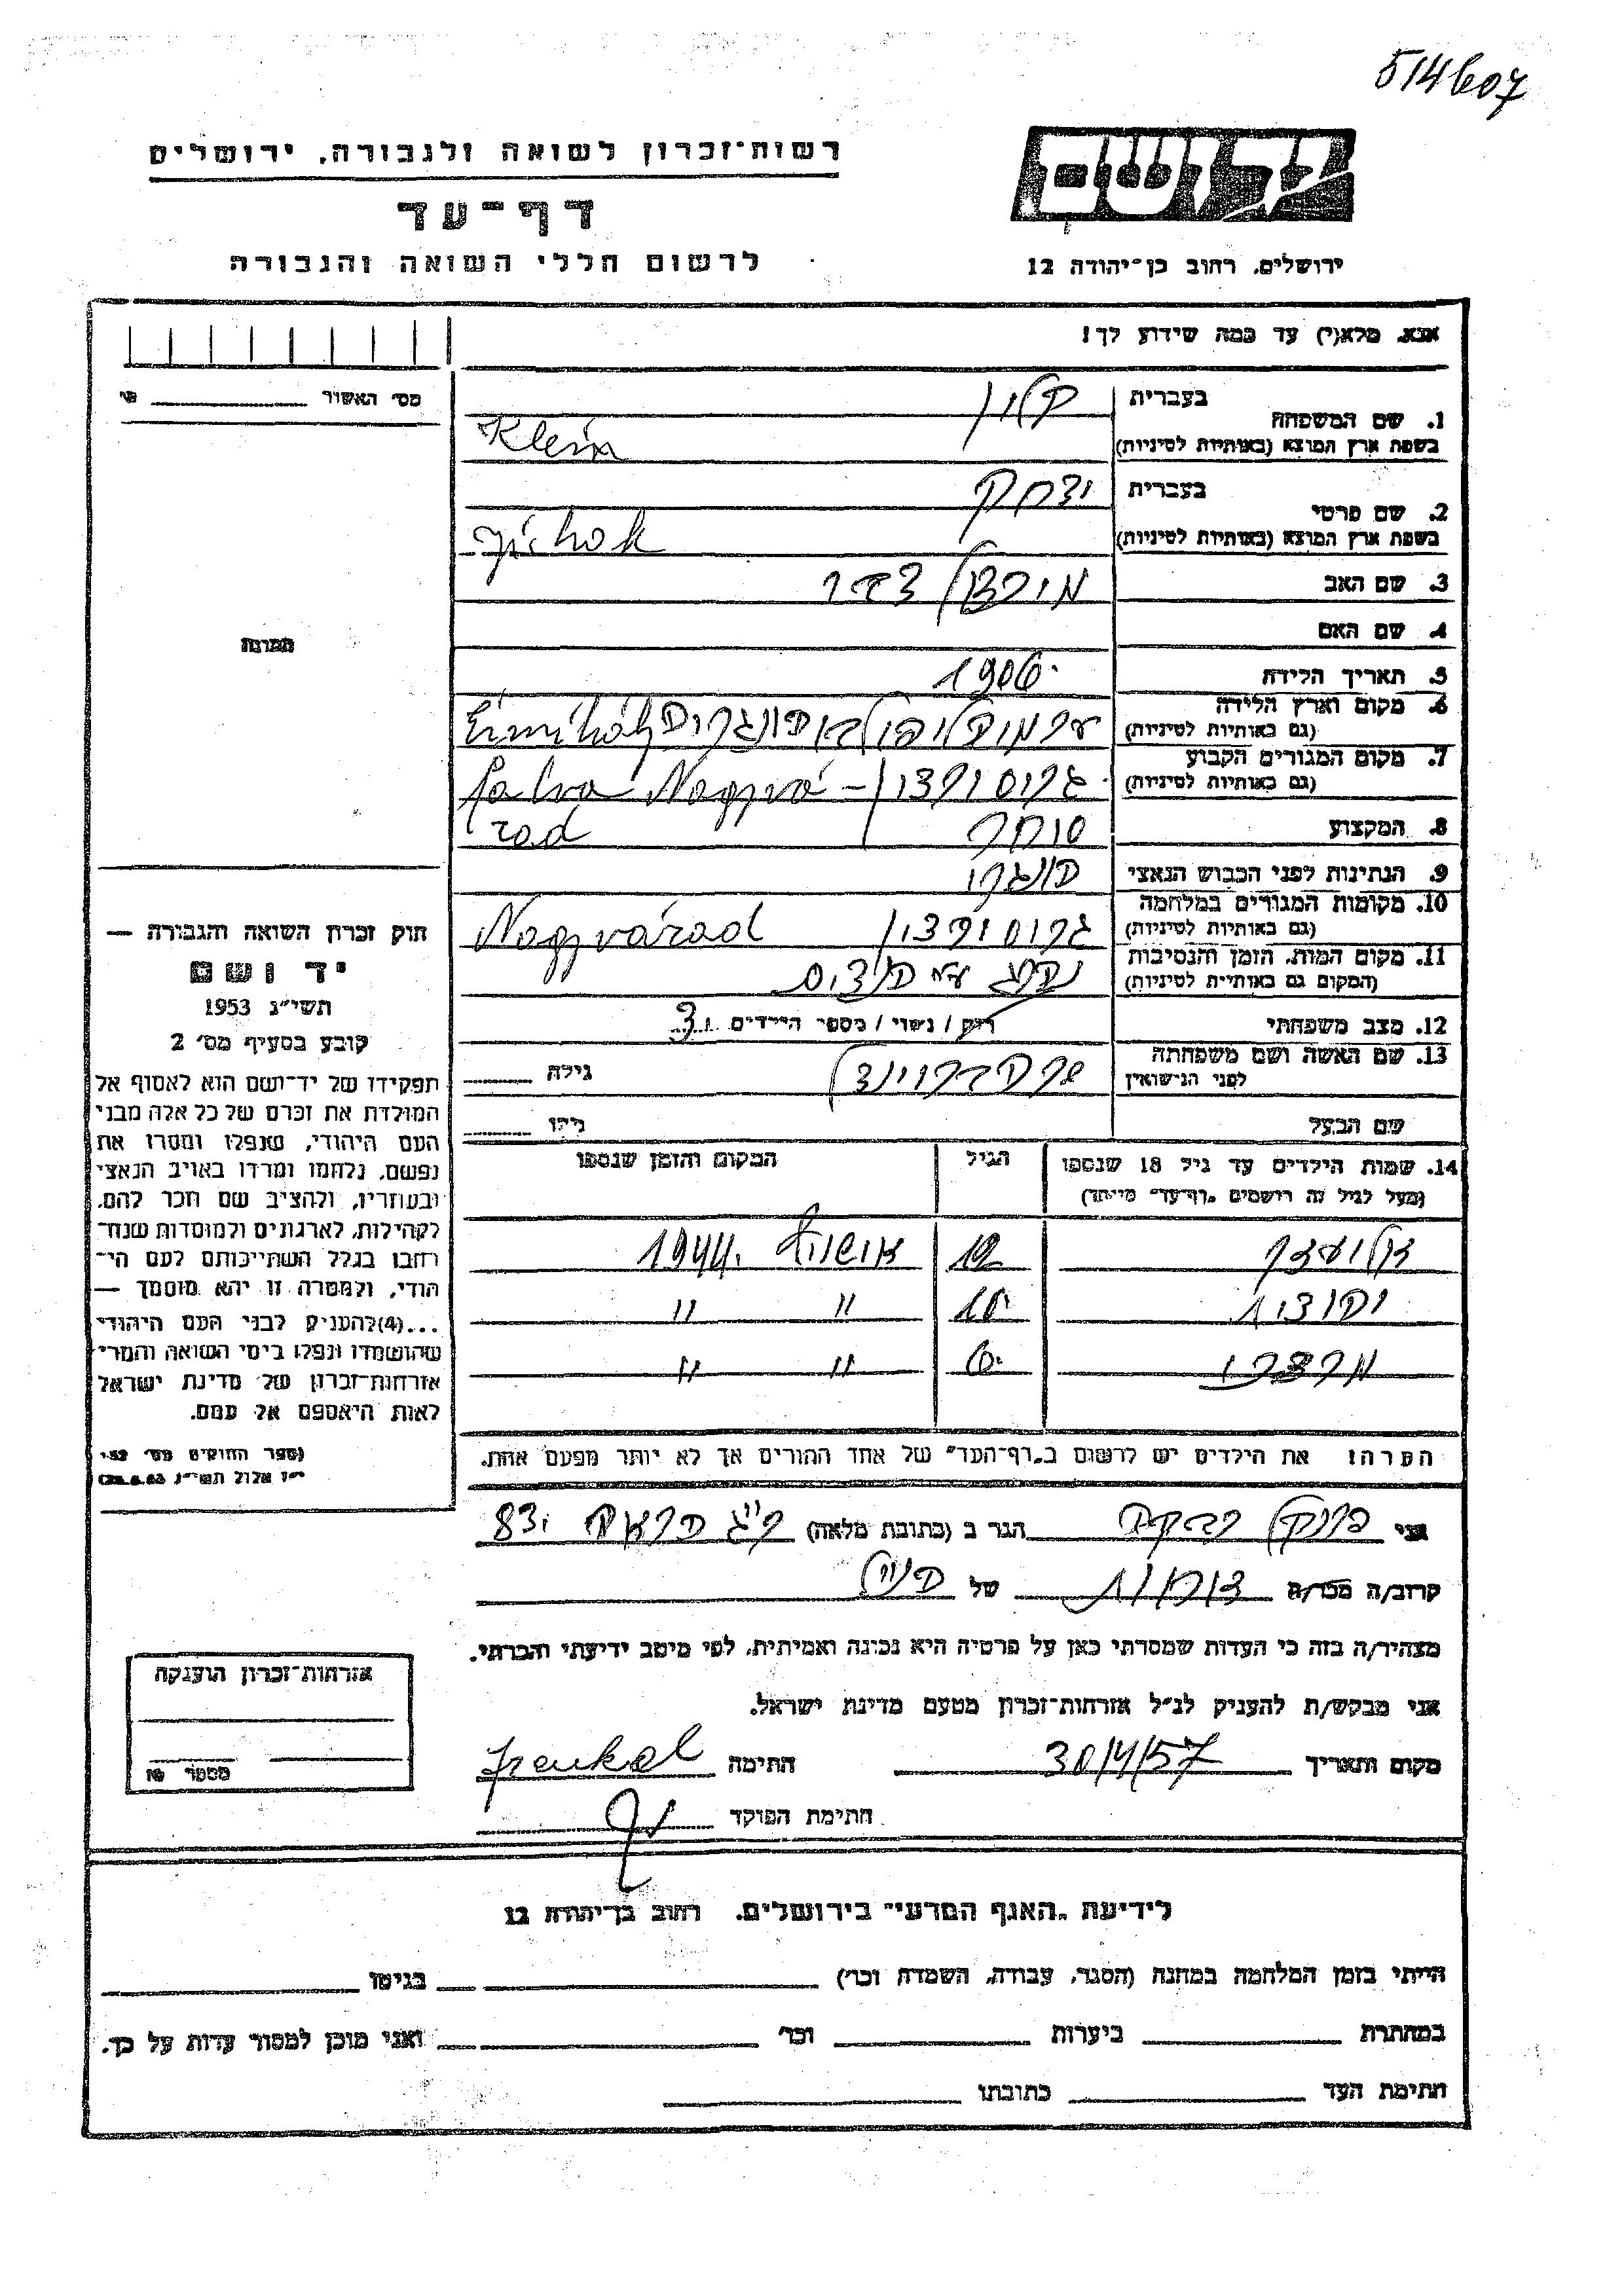 514607
רשות־זכרון לשואה ולגבורה, ירושלים
דף־עד
לרשום חללי השואה והגבורה
יד ושם
ירושלים, רחוב בן־יהודה 12
אנא, מלא(י) עד כמה שידוע לך!
מס׳ האשור
1. שם המשפחה
בעברית קליין
בשפת ארץ המוצא (באותיות לטיניות) Klein
2. שם פרטי
בעברית יצחק
בשפת ארץ המוצא (באותיות לטיניות)
3. שם האב
4. שם האם
5. תאריך הלידה 1906
6. מקום וארץ הלידה
(גם באותיות לטיניות) Érmihály
7. מקום המגורים הקבוע
(גם באותיות לטיניות) גרוסורדיין falva Nagyvá-
rad
8. המקצוע סוחר
9. הנתינות לפני הכבוש הנאצי הונגרי
10. מקומות המגורים במלחמה
(גם באותיות לטיניות) גרוסורדיין Nagyvárad
11. מקום המות, הזמן והנסיבות
(המקום גם באותיות לטיניות)
12. מצב משפחתי רווק / נשוי / מספר הילדים 3
13. שם האשה ושם משפחתה
לפני הנישואין גילה
שם הבעל גילו
14. שמות הילדים עד גיל 18 שנספו
(מעל לגיל זה רושמים ״דף־עד״ מיוחד)
הגיל
המקום והזמן שנספו
12 אושויץ 1944
10 " "
6 " "
הערה: את הילדים יש לרשום ב״דף־העד״ של אחד ההורים אך לא יותר מפעם אחת.
תמונה
חוק זכרון השואה והגבורה —
יד ושם
תשי״ג 1953
קובע בסעיף מס׳ 2
תפקידו של יד־ושם הוא לאסוף אל
המולדת את זכרם של כל אלה מבני
העם היהודי, שנפלו ומסרו את
נפשם, נלחמו ומרדו באויב הנאצי
ובעוזריו, ולהציב שם וזכר להם,
לקהילות, לארגונים ולמוסדות שנח־
רבו בגלל השתייכותם לעם הי־
הודי, ולמטרה זו יהא מוסמך —
...(4)להעניק לבני העם היהודי
שהושמדו ונפלו בימי השואה והמרי
אזרחות־זכרון של מדינת ישראל
לאות היאספם אל עמם.
(ספר החוקים מס׳ 132
י״ז אלול תשי״ג 28.8.53)
אני פרנקל רבקה הגר ב (כתובת מלאה) 83
קרוב/ה מכר/ה של
מצהיר/ה בזה כי העדות שמסרתי כאן על פרטיה היא נכונה ואמיתית, לפי מיטב ידיעתי והכרתי.
אני מבקש/ת להעניק לנ״ל אזרחות־זכרון מטעם מדינת ישראל.
מקום ותאריך 30/4/57 חתימה Frenkel
חתימת הפוקד
אזרחות־זכרון הוענקה
מספר
לידיעת ״האגף המדעי״ בירושלים, רחוב בן־יהודה 12
הייתי בזמן המלחמה במחנה (הסגר, עבודה, השמדה וכו׳) בגיטו
במחתרת ביערות וכו׳ ואני מוכן למסור עדות על כך.
חתימת העד כתובתו